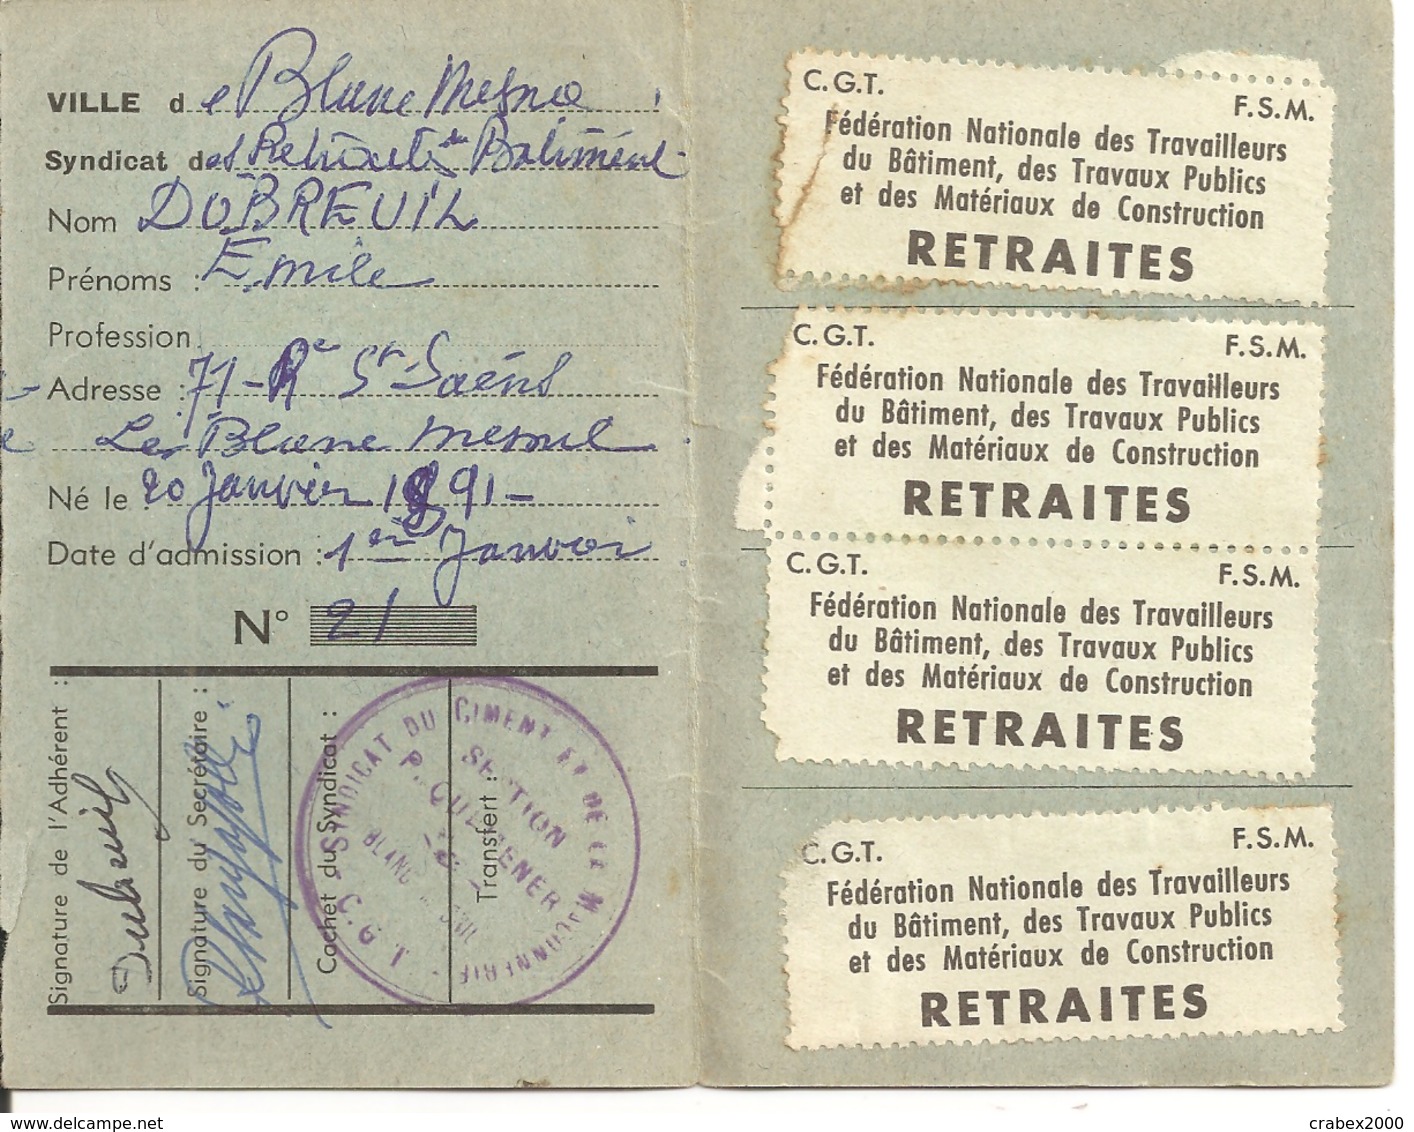 VILLE de Blanc Mesnil
Syndicat des Retraités du Bâtiment
Nom DUBREUIL
Prénoms : Emile
Profession
Adresse : 71 - Rue St-Saëns
Le Blanc Mesnil
Né le : 20 Janvier 1891 -
Date d'admission : 1er Janvier
N° 21
Signature de l'Adhérent :
Dubreuil
Signature du Secrétaire :
Cachet du Syndicat :
Transfert :
SYNDICAT DU CIMENT ET DE LA MAÇONNERIE
SECTION
BLANC
C.G.T. F.S.M.
Fédération Nationale des Travailleurs
du Bâtiment, des Travaux Publics
et des Matériaux de Construction
RETRAITES
C.G.T. F.S.M.
Fédération Nationale des Travailleurs
du Bâtiment, des Travaux Publics
et des Matériaux de Construction
RETRAITES
C.G.T. F.S.M.
Fédération Nationale des Travailleurs
du Bâtiment, des Travaux Publics
et des Matériaux de Construction
RETRAITES
C.G.T. F.S.M.
Fédération Nationale des Travailleurs
du Bâtiment, des Travaux Publics
et des Matériaux de Construction
RETRAITES
www.delcampe.net
crabex2000